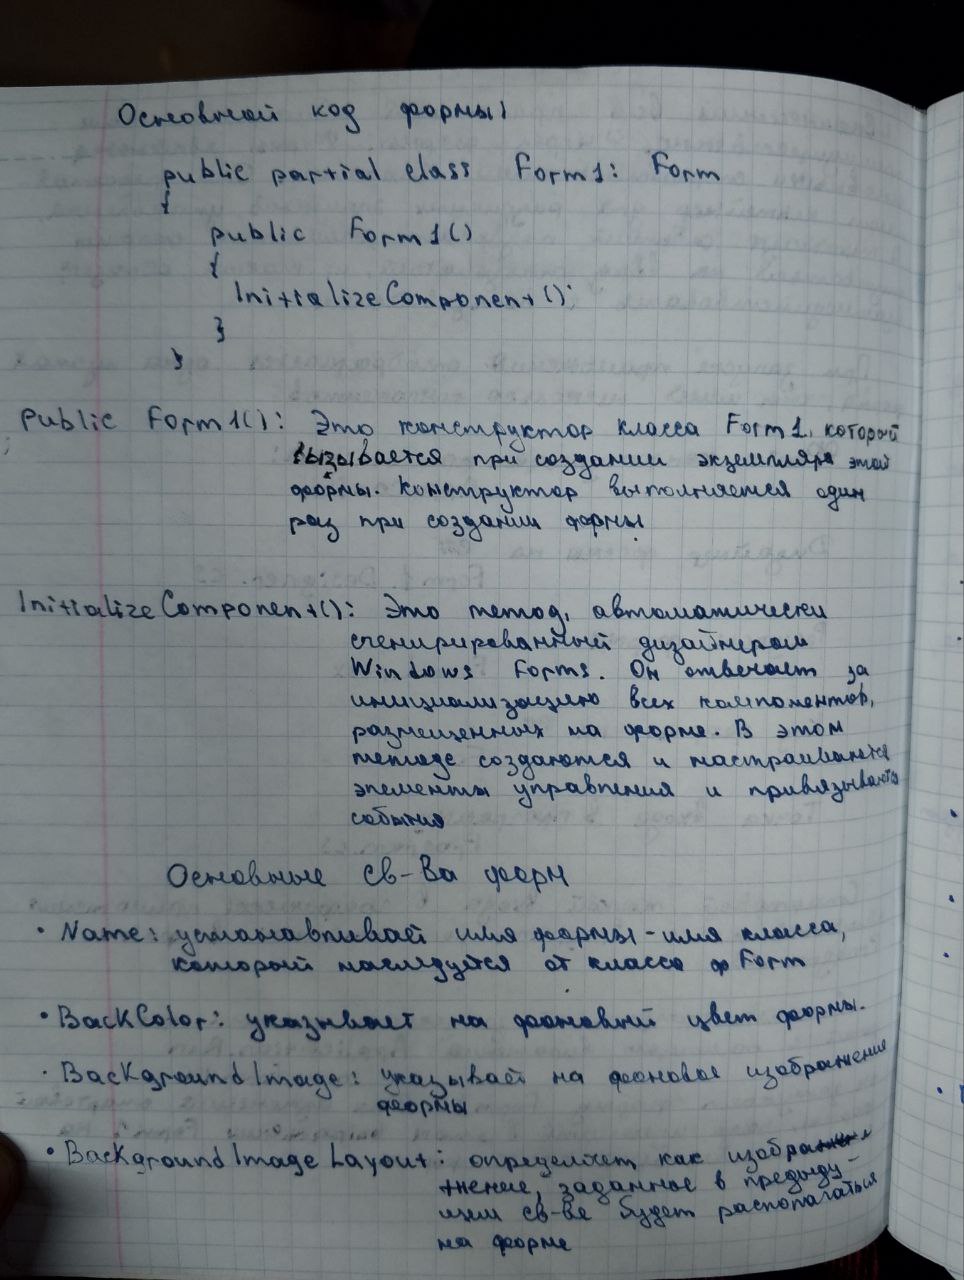 Основной код формы:
public partial class Form1: Form
{
public Form1()
{
InitializeComponent();
}
}
Public Form1(): Это конструктор класса Form1, который
вызывается при создании экземпляра этой
формы. Конструктор выполняется один
раз при создании формы
InitializeComponent(): Это метод, автоматически
сгенирированный дизайнером
Windows Forms. Он отвечает за
инициализацию всех компонентов,
размещенных на форме. В этом
методе создаются и настраиваются
элементы управления и привязываются
события
Основные св-ва форм
• Name: устанавливай имя формы - имя класса,
который наследуется от класса Form
• BackColor: указывает на фоновый цвет формы.
• BackgroundImage: указывает на фоновое изображение
формы
• BackgroundImageLayout: определяет как изобра
жение, заданное в предыду-
щем св-ве будет располагаться
на форме